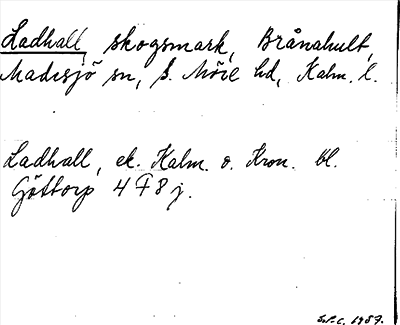 Ladhall, skogsmark, Brånahult,
Madesjö sn, S. Möre hd, Kalm. l.
Ladhall, ek. Kalm. o. Kron. bl.
Göttorp 4 F 8 j.
1957.